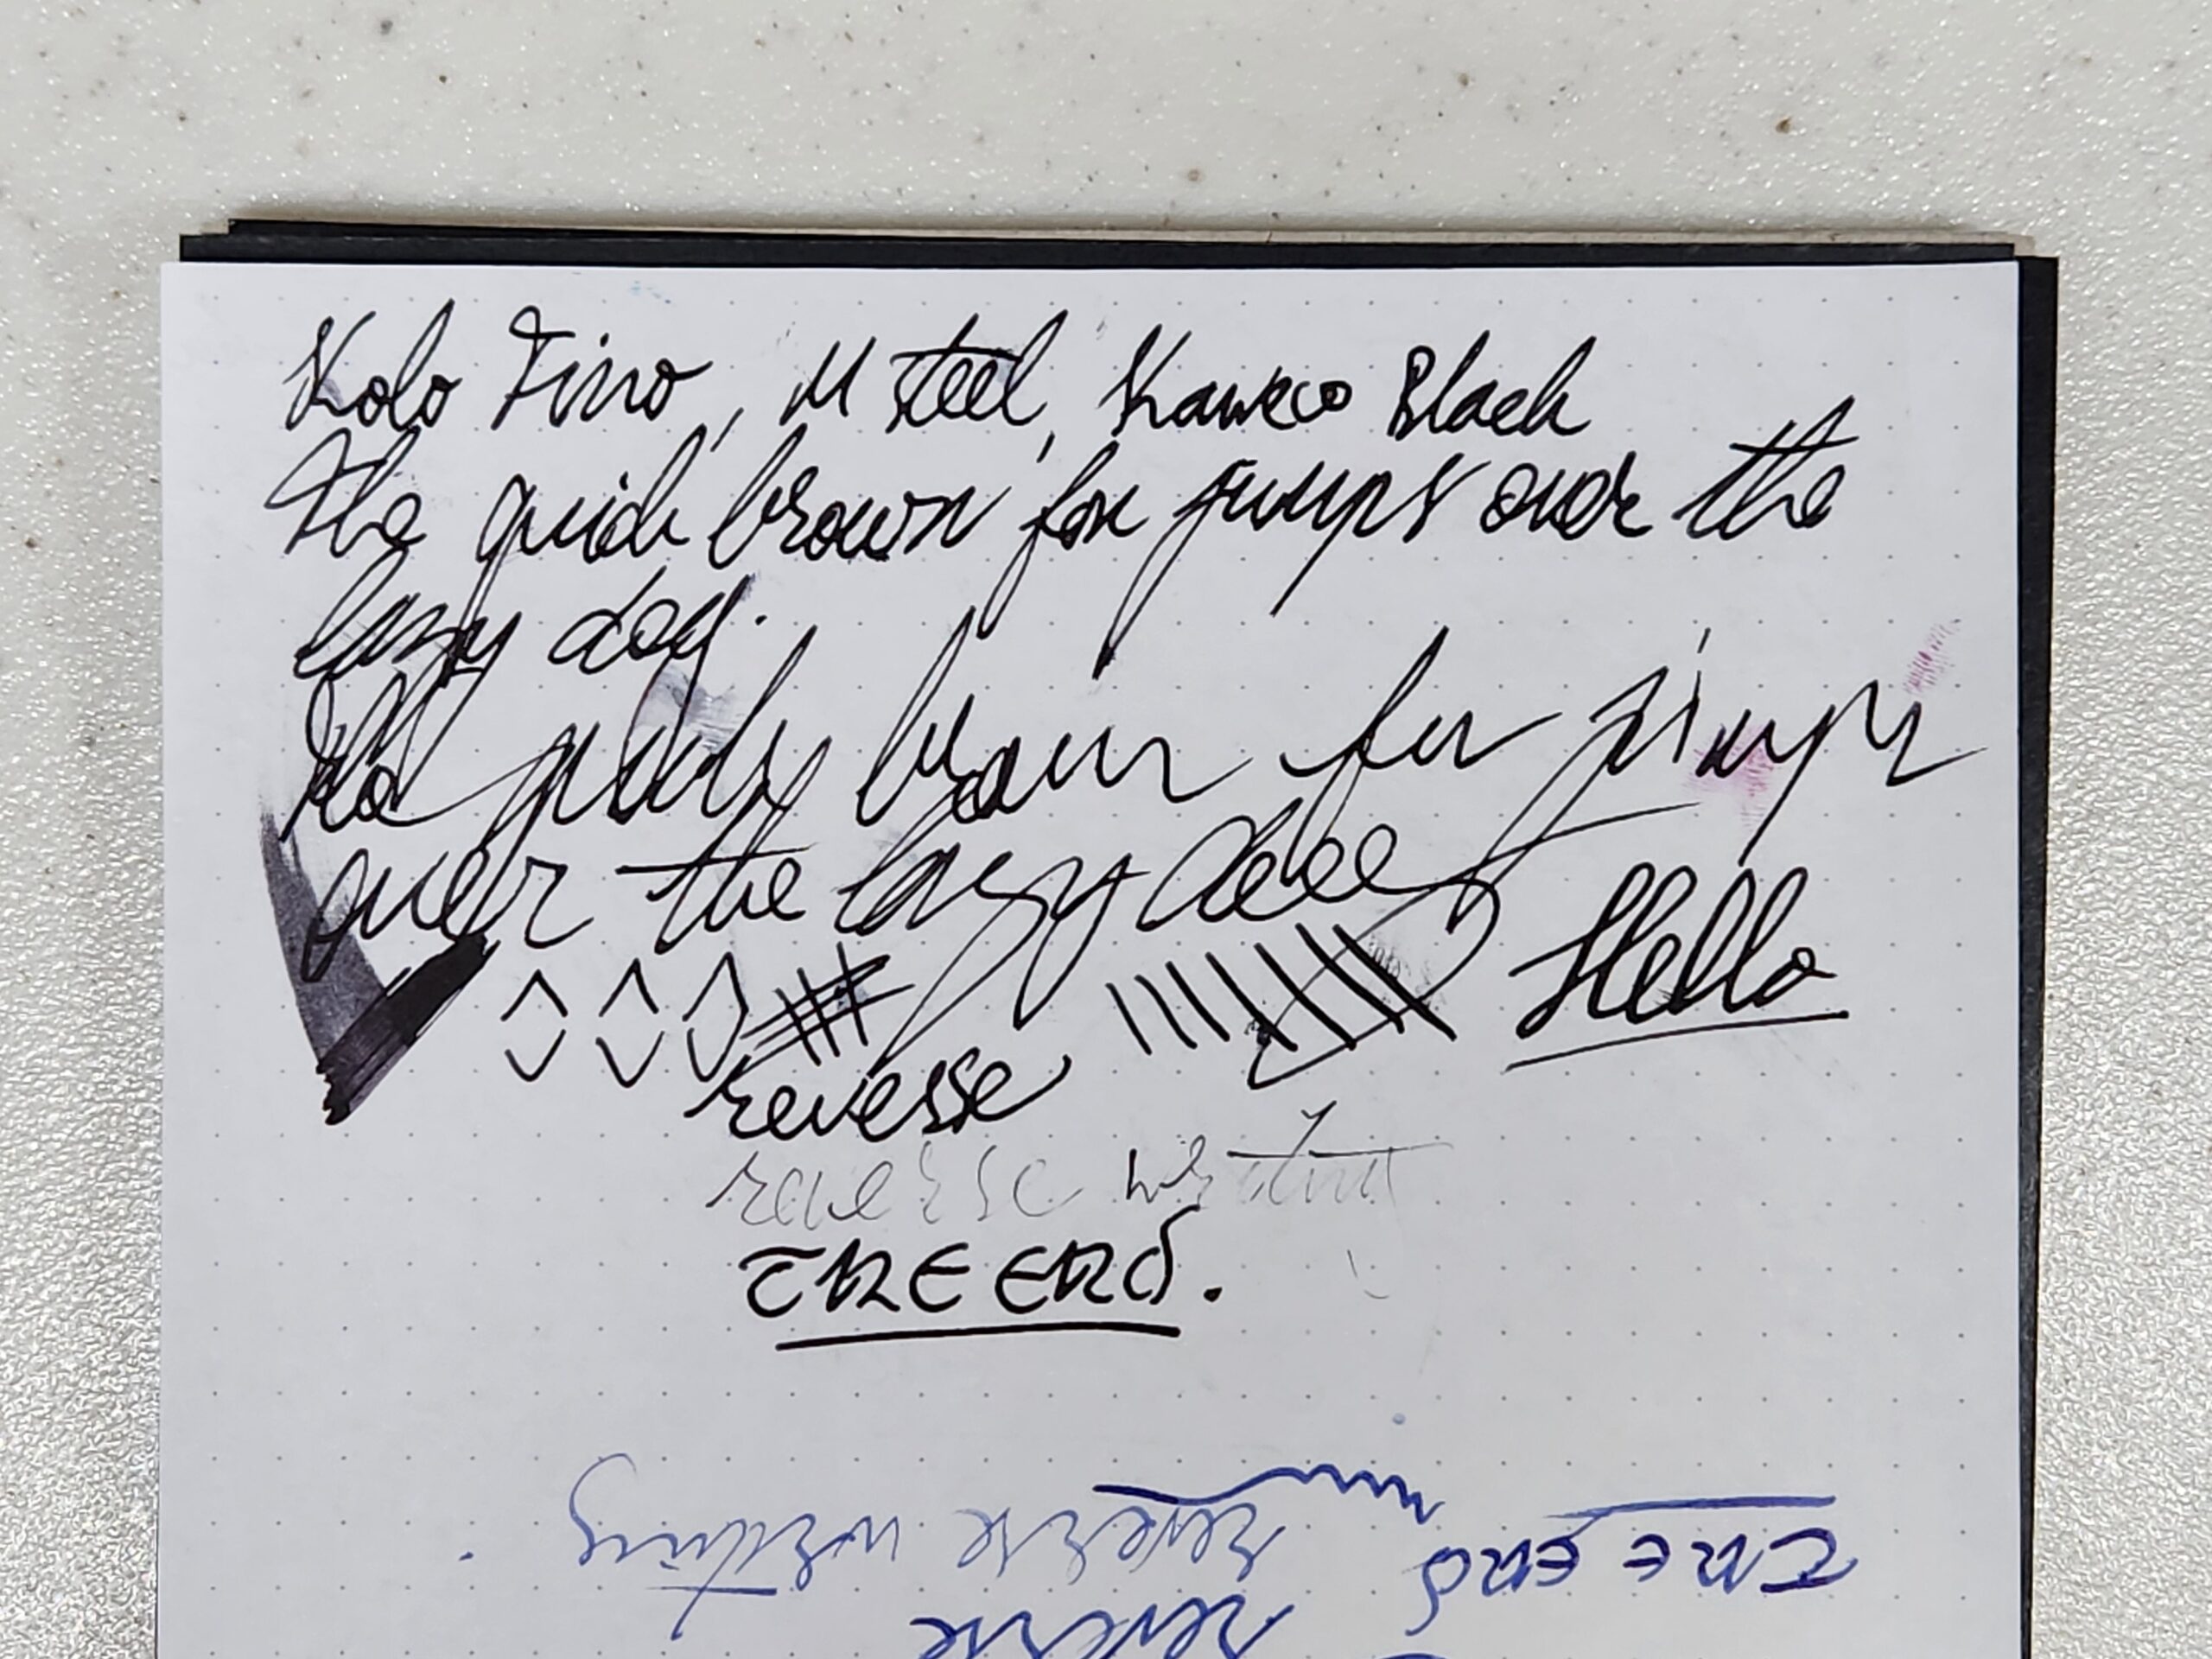 Kolo Tino, M steel, Kaweco Black
The quick brown fox jumps over the
lazy dog.
The quick brown fox jumps
over the lazy
Hello
reverse
reverse writing
THE END.
THE END
reverse writing.
reverse